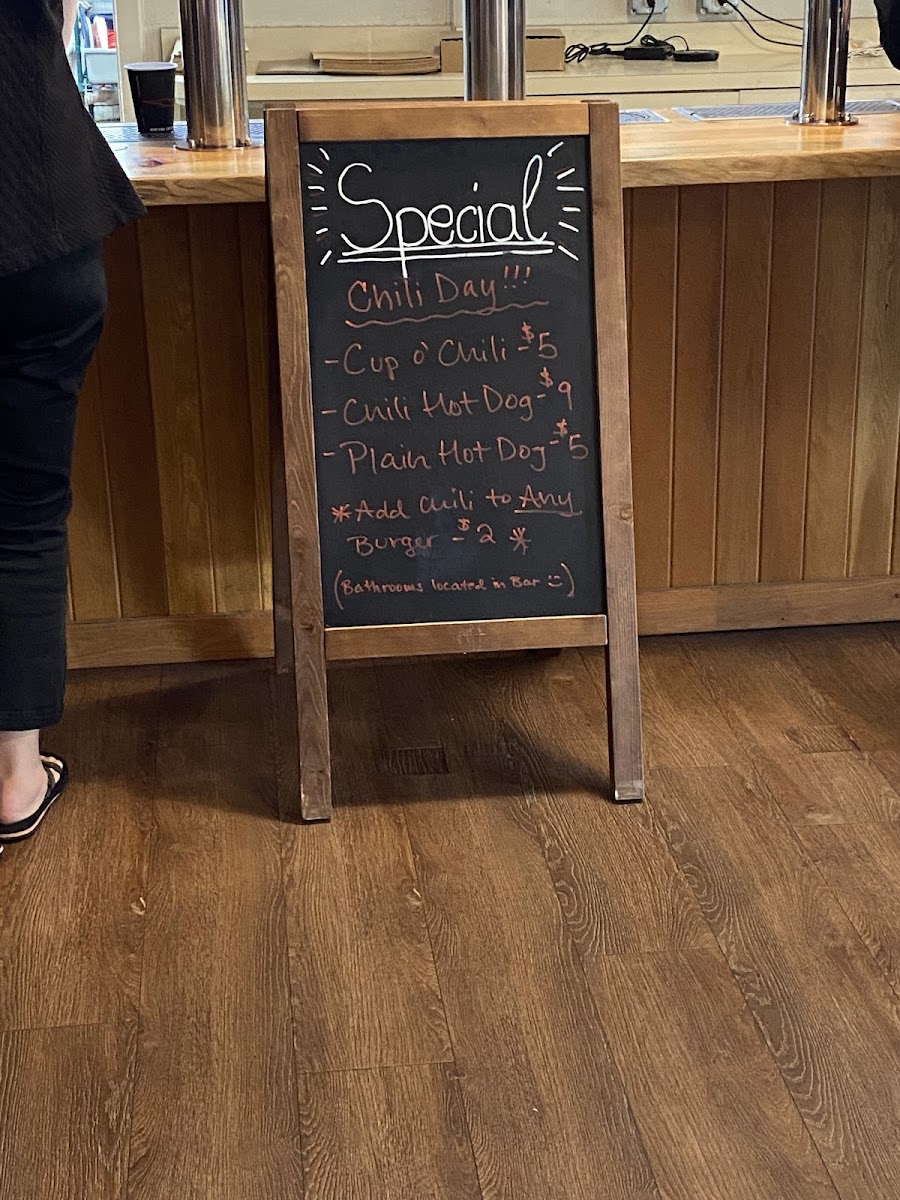 Special
Chili Day!!!
- Cup o' Chili - $5
- Chili Hot Dog - $9
- Plain Hot Dog - $5
*Add chili to Any
Burger - $2 *
(Bathrooms located in Bar ☺)